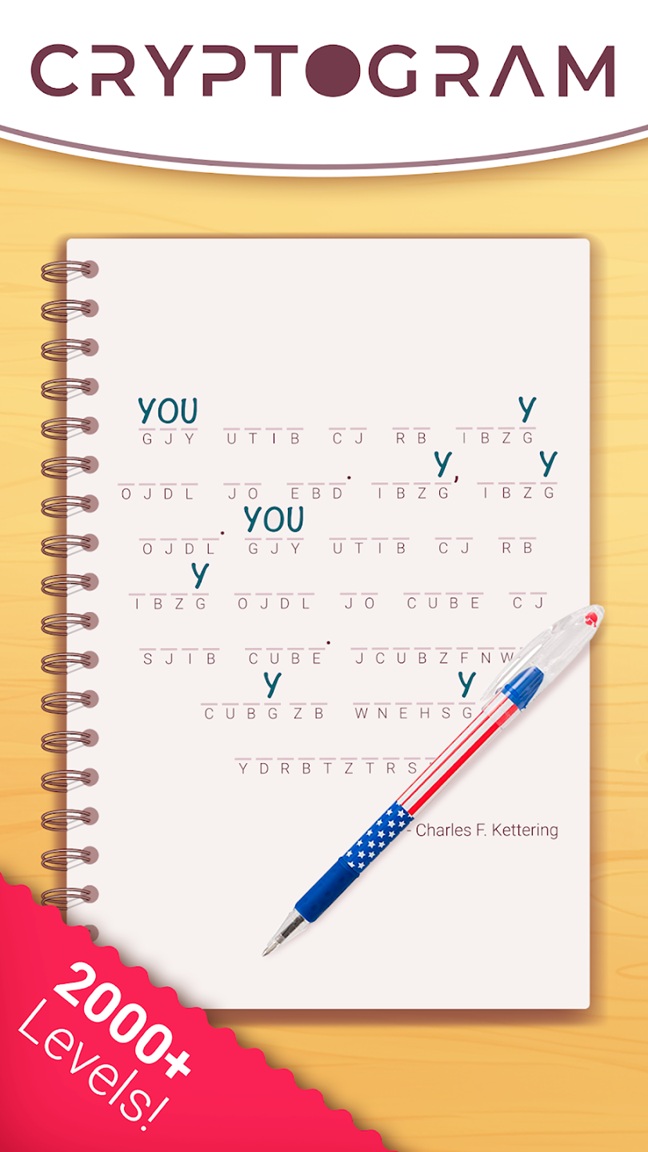 CRYPTOGRAM
YOU Y
GJY UTIB CJ RB IBZG
Y Y
OJDL JO EBD. IBZG, IBZG
YOU
OJDL. GJY UTIB CJ RB
Y
IBZG OJDL JO CUBE CJ
SJIB CUBE. JCUBZFNW
Y Y
CUBGZB WNEHSG
YDRBTZTRS
- Charles F. Kettering
2000+
Levels!